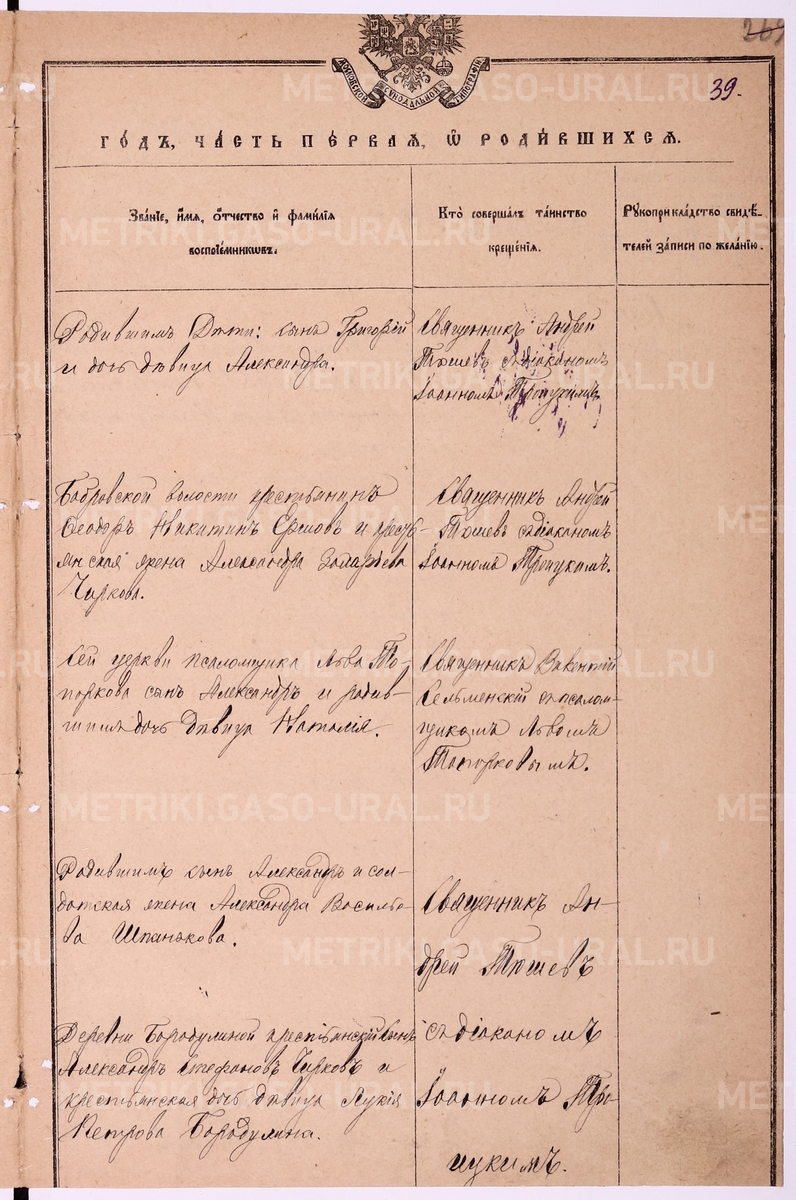 269
39.
МОСКОВСКОЙ СѴНОДАЛЬНОЙ ТИПОГРАФІИ
ГО́ДЪ, ЧА́СТЬ ПЕ́РВАѦ, Ѡ҆ РОДИ́ВШИХСѦ.
Зва́нїе, и҆́мѧ, ѻ҆́тчество и҆ фами́лїѧ
воспрїе́мникѡвъ.
Кто̀ соверша́лъ та́инство
креще́нїѧ.
Рꙋкоприкла́дство свидѣ́-
телей за́писи по жела́нїю.
Родившимъ Дѣти: сынъ Григорій
и дочь дѣвица Александра.
Священникъ Андрей
Тюшевъ съ діакономъ
Іоанномъ Троицкимъ
Бобровской волости крестьянинъ
Ѳеодоръ Никитинъ и кресть-
янская жена Александра
Чиркова.
Священникъ Андрей
Тюшевъ съ діакономъ
Іоанномъ Троицкимъ.
Сей церкви псаломщика Льва То-
поркова сынъ Александръ и родив-
шимъ дочь дѣвица Наталія.
Священникъ Викентій
Сельменскій съ псалом-
щикомъ Львомъ
Топорковымъ.
Родившимъ сынъ Александръ и сол-
датская жена Александра Василье-
ва Шпанькова.
Священникъ Ан-
дрей Тюшевъ
съ діакономъ
Іоанномъ Тро-
ицкимъ.
Деревни Бородулиной крестьянскій сынъ
Александръ Стефановъ Чирковъ и
крестьянская дочь дѣвица Лукія
Петрова Бородулина.
METRIKI.GASO-URAL.RU